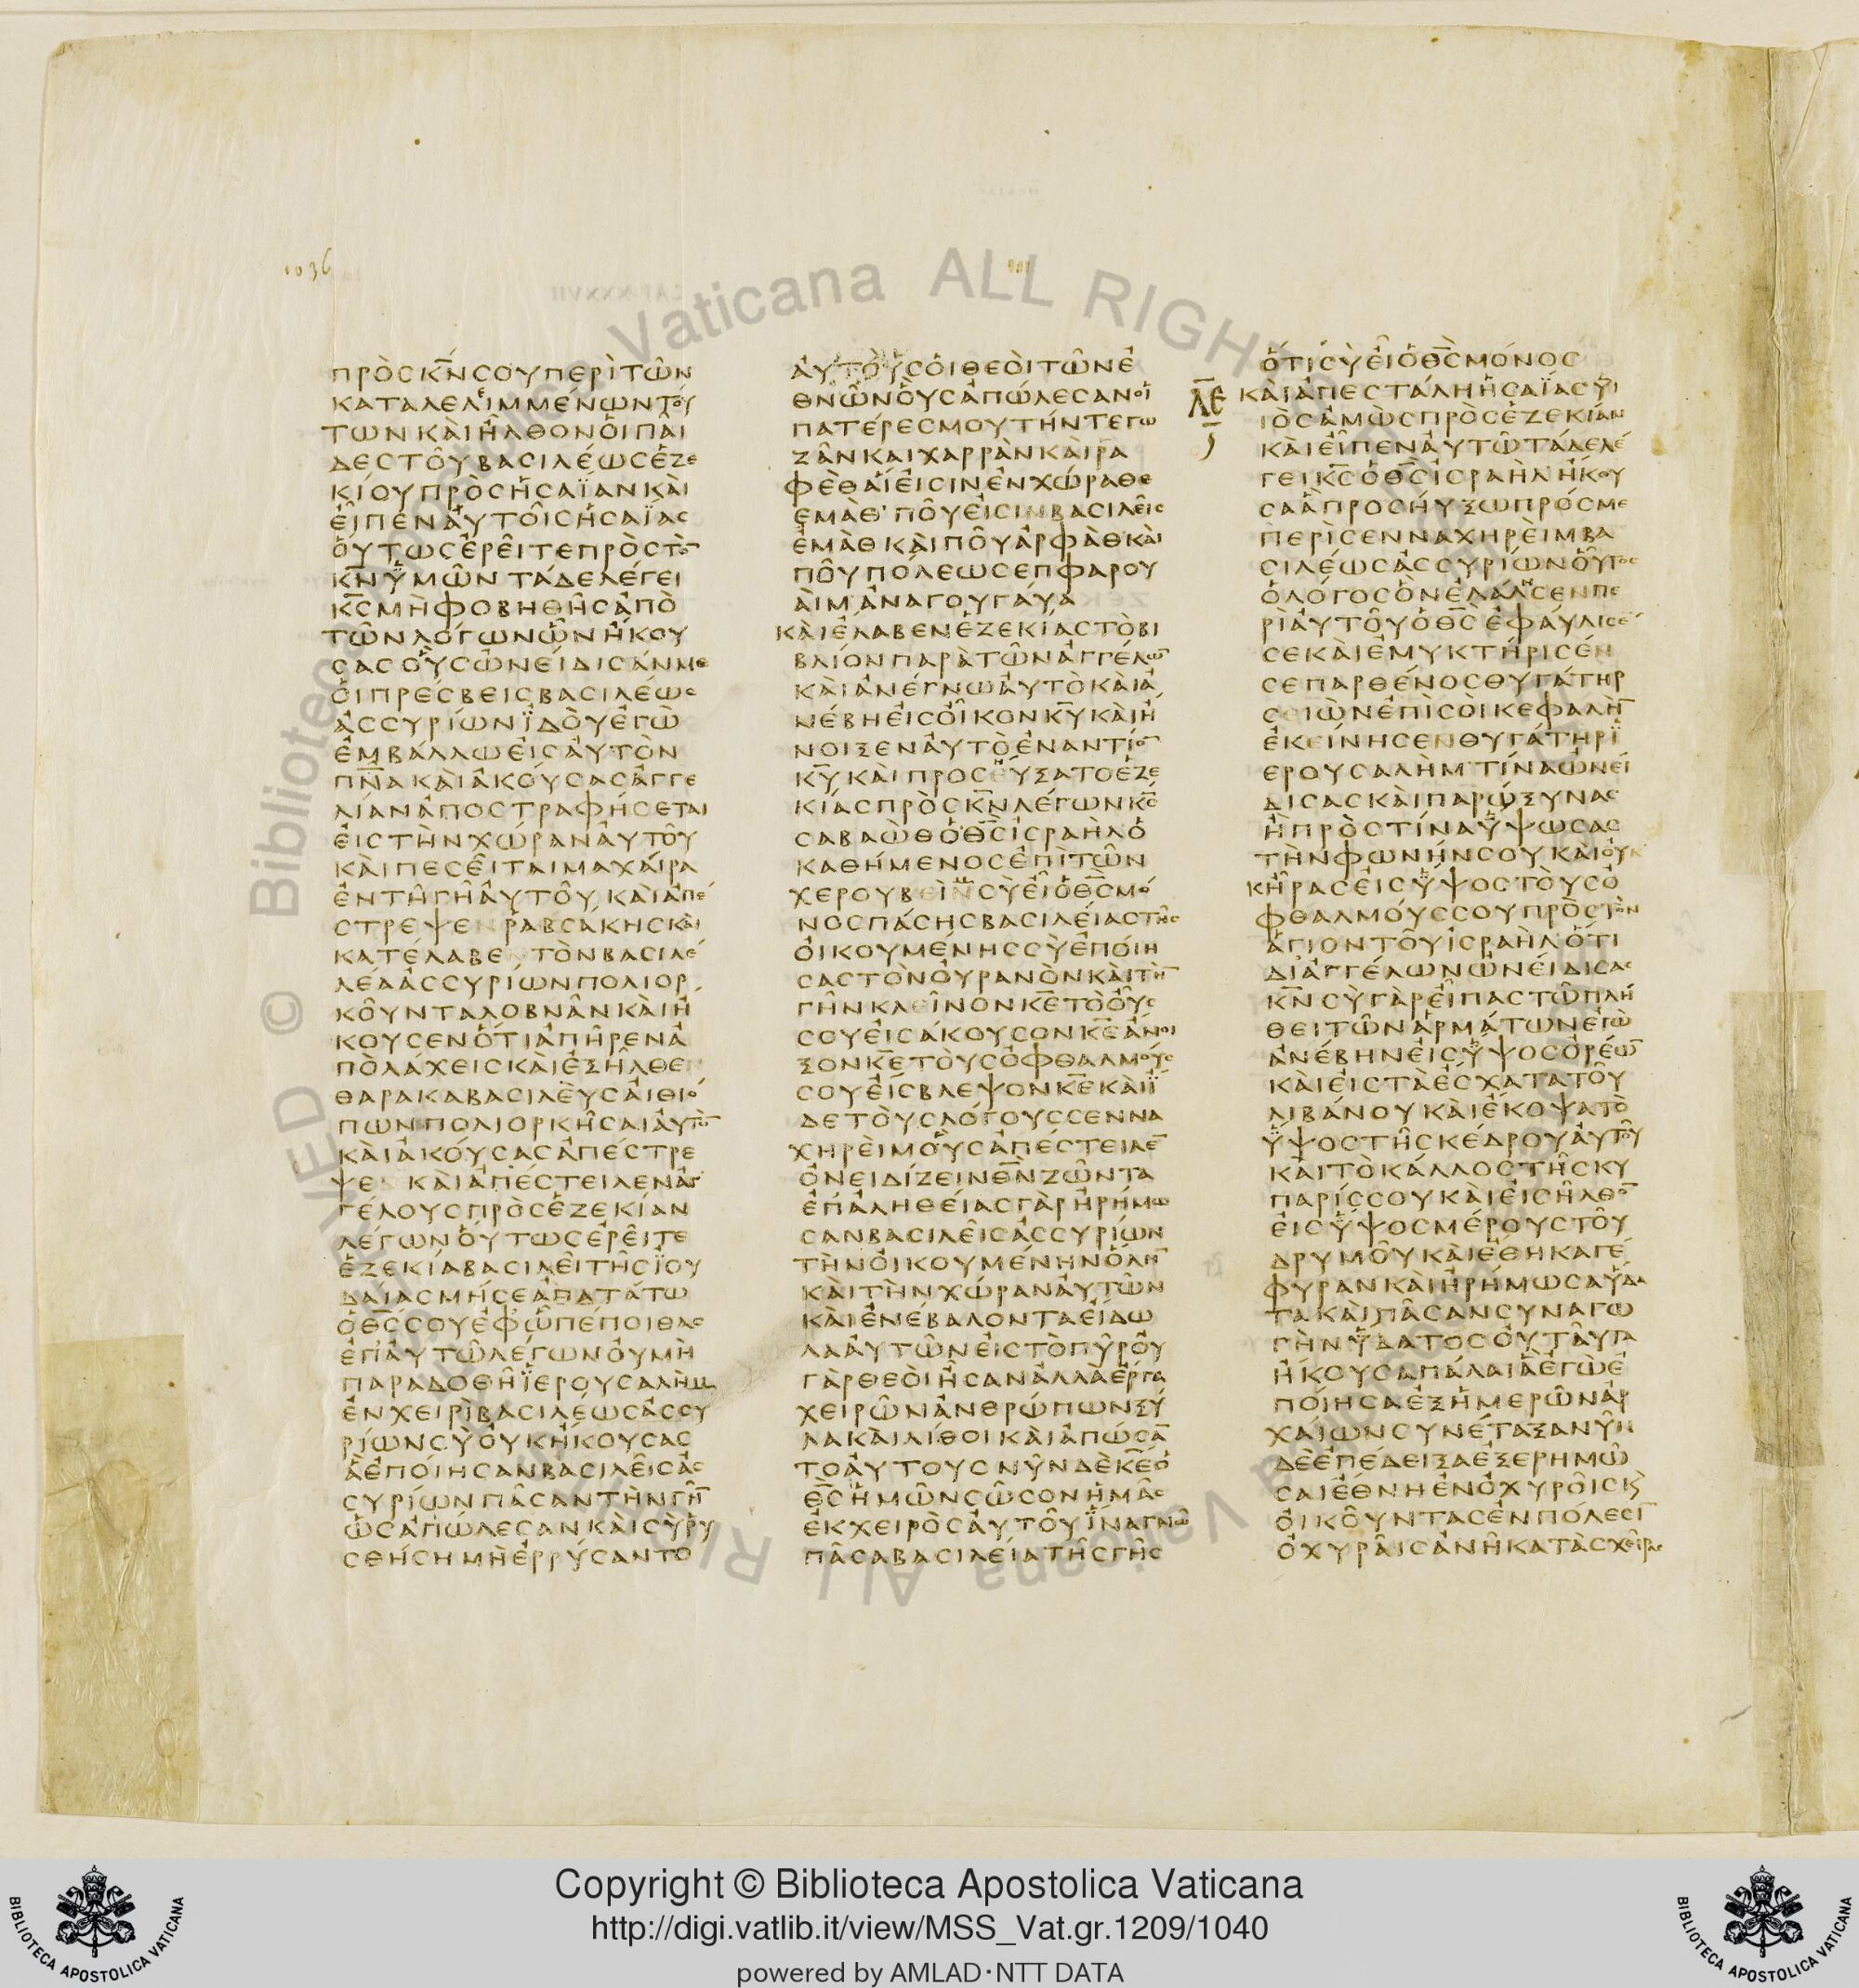 1036
ΠΡΟΣ Κ̅Ν̅ ΣΟΥ ΠΕΡΙ ΤΩΝ
ΚΑΤΑΛΕΛΙΜΜΕΝΩΝ ΤΟΥ
ΤΩΝ ΚΑΙ ΗΛΘΟΝ ΟΙ ΠΑΙ
ΔΕΣ ΤΟΥ ΒΑΣΙΛΕΩΣ ΕΖΕ
ΚΙΟΥ ΠΡΟΣ ΗΣΑΪΑΝ ΚΑΙ
ΕΙΠΕΝ ΑΥΤΟΙΣ ΗΣΑΪΑΣ
ΟΥΤΩΣ ΕΡΕΙΤΕ ΠΡΟΣ ΤΟ̅
Κ̅Ν̅ ΫΜΩΝ ΤΑΔΕ ΛΕΓΕΙ
Κ̅Σ̅ ΜΗ ΦΟΒΗΘΗΣ ΑΠΟ
ΤΩΝ ΛΟΓΩΝ ΩΝ ΗΚΟΥ
ΣΑΣ ΟΥΣ ΩΝΕΙΔΙΣΑΝ ΜΕ
ΟΙ ΠΡΕΣΒΕΙΣ ΒΑΣΙΛΕΩΣ
ΑΣΣΥΡΙΩΝ ΪΔΟΥ ΕΓΩ
ΕΜΒΑΛΛΩ ΕΙΣ ΑΥΤΟΝ
Π̅Ν̅Α̅ ΚΑΙ ΑΚΟΥΣΑΣ ΑΓΓΕ
ΛΙΑΝ ΑΠΟΣΤΡΑΦΗΣΕΤΑΙ
ΕΙΣ ΤΗΝ ΧΩΡΑΝ ΑΥΤΟΥ
ΚΑΙ ΠΕΣΕΙΤΑΙ ΜΑΧΑΙΡΑ
ΕΝ ΤΗ ΓΗ ΑΥΤΟΥ ΚΑΙ ΑΠΕ
ΣΤΡΕΨΕΝ ΡΑΒΣΑΚΗΣ ΚΑΙ
ΚΑΤΕΛΑΒΕΝ ΤΟΝ ΒΑΣΙΛΕ
ΛΕΑ ΑΣΣΥΡΙΩΝ ΠΟΛΙΟΡ
ΚΟΥΝΤΑ ΛΟΒΝΑΝ ΚΑΙ Η
ΚΟΥΣΕΝ ΟΤΙ ΑΠΗΡΕΝ Α
ΠΟ ΛΑΧΕΙΣ ΚΑΙ ΕΞΗΛΘΕ
ΘΑΡΑΚΑ ΒΑΣΙΛΕΥΣ ΑΙΘΙΟ
ΠΩΝ ΠΟΛΙΟΡΚΗΣΑΙ ΑΥΤΟ̅
ΚΑΙ ΑΚΟΥΣΑΣ ΑΠΕΣΤΡΕ
ΨΕΝ ΚΑΙ ΑΠΕΣΤΕΙΛΕΝ ΑΓ
ΓΕΛΟΥΣ ΠΡΟΣ ΕΖΕΚΙΑΝ
ΛΕΓΩΝ ΟΥΤΩΣ ΕΡΕΙΤΕ
ΕΖΕΚΙΑ ΒΑΣΙΛΕΙ ΤΗΣ ΪΟΥ
ΔΑΙΑΣ ΜΗ ΣΕ ΑΠΑΤΑΤΩ
Ο Θ̅Σ̅ ΣΟΥ ΕΦ Ω ΠΕΠΟΙΘΑΣ
ΕΠ ΑΥΤΩ ΛΕΓΩΝ ΟΥ ΜΗ
ΠΑΡΑΔΟΘΗ ΪΕΡΟΥΣΑΛΗΜ
ΕΝ ΧΕΙΡΙ ΒΑΣΙΛΕΩΣ ΑΣΣΥ
ΡΙΩΝ ΣΥ ΟΥΚ ΗΚΟΥΣΑΣ
Α ΕΠΟΙΗΣΑΝ ΒΑΣΙΛΕΙΣ ΑΣ
ΣΥΡΙΩΝ ΠΑΣΑΝ ΤΗΝ ΓΗ̅
ΩΣ ΑΠΩΛΕΣΑΝ ΚΑΙ ΣΥ ΡΥ
ΣΘΗΣΗ ΜΗ ΕΡΡΥΣΑΝΤΟ
ΑΥΤΟΥΣ ΟΙ ΘΕΟΙ ΤΩΝ Ε
ΘΝΩΝ ΟΥΣ ΑΠΩΛΕΣΑΝ ΟΙ
ΠΑΤΕΡΕΣ ΜΟΥ ΤΗΝ ΤΕ ΓΩ
ΖΑΝ ΚΑΙ ΧΑΡΡΑΝ ΚΑΙ ΡΑ
ΦΕΘ ΑΙ ΕΙΣΙΝ ΕΝ ΧΩΡΑ ΘΕ
ΕΜΑΘ ΠΟΥ ΕΙΣΙΝ ΒΑΣΙΛΕΙΣ
ΕΜΑΘ ΚΑΙ ΠΟΥ ΑΡΦΑΘ ΚΑΙ
ΠΟΥ ΠΟΛΕΩΣ ΕΠΦΑΡΟΥ
ΑΙΜ ΑΝΑΓ ΟΥΓΑΥΑ
ΚΑΙ ΕΛΑΒΕΝ ΕΖΕΚΙΑΣ ΤΟ ΒΙ
ΒΛΙΟΝ ΠΑΡΑ ΤΩΝ ΑΓΓΕΛΩ̅
ΚΑΙ ΑΝΕΓΝΩ ΑΥΤΟ ΚΑΙ Α
ΝΕΒΗ ΕΙΣ ΟΙΚΟΝ Κ̅Υ̅ ΚΑΙ Η
ΝΟΙΞΕΝ ΑΥΤΟ ΕΝΑΝΤΙΟ̅
Κ̅Υ̅ ΚΑΙ ΠΡΟΣΕΥΞΑΤΟ ΕΖΕ
ΚΙΑΣ ΠΡΟΣ Κ̅Ν̅ ΛΕΓΩΝ Κ̅Σ̅
ΣΑΒΑΩΘ Ο Θ̅Σ̅ ΙΣΡΑΗΛ Ο
ΚΑΘΗΜΕΝΟΣ ΕΠΙ ΤΩΝ
ΧΕΡΟΥΒΕΙΝ ΣΥ ΕΙ Ο Θ̅Σ̅ ΜΟ
ΝΟΣ ΠΑΣΗΣ ΒΑΣΙΛΕΙΑΣ ΤΗΣ
ΟΙΚΟΥΜΕΝΗΣ ΣΥ ΕΠΟΙΗ
ΣΑΣ ΤΟΝ ΟΥΡΑΝΟΝ ΚΑΙ ΤΗ̅
ΓΗΝ ΚΛΕΙΝΟΝ Κ̅Ε̅ ΤΟ ΟΥΣ
ΣΟΥ ΕΙΣΑΚΟΥΣΟΝ Κ̅Ε̅ ΑΝΟΙ
ΞΟΝ Κ̅Ε̅ ΤΟΥΣ ΟΦΘΑΛΜΟΥΣ
ΣΟΥ ΕΙΣΒΛΕΨΟΝ Κ̅Ε̅ ΚΑΙ Ϊ
ΔΕ ΤΟΥΣ ΛΟΓΟΥΣ ΣΕΝΝΑ
ΧΗΡΕΙΜ ΟΥΣ ΑΠΕΣΤΕΙΛΕ̅
ΟΝΕΙΔΙΖΕΙΝ Θ̅Ν̅ ΖΩΝΤΑ
ΕΠ ΑΛΗΘΕΙΑΣ ΓΑΡ ΗΡΗΜΩ
ΣΑΝ ΒΑΣΙΛΕΙΣ ΑΣΣΥΡΙΩΝ
ΤΗΝ ΟΙΚΟΥΜΕΝΗΝ ΟΛΗ̅
ΚΑΙ ΤΗΝ ΧΩΡΑΝ ΑΥΤΩΝ
ΚΑΙ ΕΝΕΒΑΛΟΝ ΤΑ ΕΙΔΩ
ΛΑ ΑΥΤΩΝ ΕΙΣ ΤΟ ΠΥΡ ΟΥ
ΓΑΡ ΘΕΟΙ ΗΣΑΝ ΑΛΛΑ ΕΡΓΑ
ΧΕΙΡΩΝ ΑΝΘΡΩΠΩΝ ΞΥ
ΛΑ ΚΑΙ ΛΙΘΟΙ ΚΑΙ ΑΠΩΣΑ̅
ΤΟ ΑΥΤΟΥΣ ΝΥΝ ΔΕ Κ̅Ε̅ Ο
Θ̅Σ̅ ΗΜΩΝ ΣΩΣΟΝ ΗΜΑΣ
ΕΚ ΧΕΙΡΟΣ ΑΥΤΟΥ ΪΝΑ ΓΝΩ
ΠΑΣΑ ΒΑΣΙΛΕΙΑ ΤΗΣ ΓΗΣ
ΟΤΙ ΣΥ ΕΙ Ο Θ̅Σ̅ ΜΟΝΟΣ
Λ̅Ε̅ ΚΑΙ ΑΠΕΣΤΑΛΗ ΗΣΑΪΑΣ ΥΙ
ΙΟΣ ΑΜΩΣ ΠΡΟΣ ΕΖΕΚΙΑΝ
ΚΑΙ ΕΙΠΕΝ ΑΥΤΩ ΤΑΔΕ ΛΕ
ΓΕΙ Κ̅Σ̅ Ο Θ̅Σ̅ ΙΣΡΑΗΛ ΗΚΟΥ
ΣΑ Α ΠΡΟΣΗΥΞΩ ΠΡΟΣ ΜΕ
ΠΕΡΙ ΣΕΝΝΑΧΗΡΕΙΜ ΒΑ
ΣΙΛΕΩΣ ΑΣΣΥΡΙΩΝ ΟΥΤΟΣ
Ο ΛΟΓΟΣ ΟΝ ΕΛΑΛΗΣΕΝ ΠΕ
ΡΙ ΑΥΤΟΥ Ο Θ̅Σ̅ ΕΦΑΥΛΙΣΕ
ΣΕ ΚΑΙ ΕΜΥΚΤΗΡΙΣΕΝ
ΣΕ ΠΑΡΘΕΝΟΣ ΘΥΓΑΤΗΡ
ΣΕΙΩΝ ΕΠΙ ΣΟΙ ΚΕΦΑΛΗ̅
ΕΚΕΙΝΗΣΕΝ ΘΥΓΑΤΗΡ Ϊ
ΕΡΟΥΣΑΛΗΜ ΤΙΝΑ ΩΝΕΙ
ΔΙΣΑΣ ΚΑΙ ΠΑΡΩΞΥΝΑΣ
Η ΠΡΟΣ ΤΙΝΑ ΫΨΩΣΑΣ
ΤΗΝ ΦΩΝΗΝ ΣΟΥ ΚΑΙ ΟΥΚ
ΗΡΑΣ ΕΙΣ ΫΨΟΣ ΤΟΥΣ Ο
ΦΘΑΛΜΟΥΣ ΣΟΥ ΠΡΟΣ ΤΟΝ
ΑΓΙΟΝ ΤΟΥ ΙΣΡΑΗΛ ΟΤΙ
ΔΙ ΑΓΓΕΛΩΝ ΩΝΕΙΔΙΣΑΣ
Κ̅Ν̅ ΣΥ ΓΑΡ ΕΙΠΑΣ ΤΩ ΠΛΗ
ΘΕΙ ΤΩΝ ΑΡΜΑΤΩΝ ΕΓΩ
ΑΝΕΒΗΝ ΕΙΣ ΫΨΟΣ ΟΡΕΩ̅
ΚΑΙ ΕΙΣ ΤΑ ΕΣΧΑΤΑ ΤΟΥ
ΛΙΒΑΝΟΥ ΚΑΙ ΕΚΟΨΑ ΤΟ
ΫΨΟΣ ΤΗΣ ΚΕΔΡΟΥ ΑΥΤΟΥ
ΚΑΙ ΤΟ ΚΑΛΛΟΣ ΤΗΣ ΚΥ
ΠΑΡΙΣΣΟΥ ΚΑΙ ΕΙΣΗΛΘΟ̅
ΕΙΣ ΫΨΟΣ ΜΕΡΟΥΣ ΤΟΥ
ΔΡΥΜΟΥ ΚΑΙ ΕΘΗΚΑ ΓΕ
ΦΥΡΑΝ ΚΑΙ ΗΡΗΜΩΣΑ ΫΔΑ
ΤΑ ΚΑΙ ΠΑΣΑΝ ΣΥΝΑΓΩ
ΓΗΝ ΫΔΑΤΟΣ ΟΥ ΤΑΥΤΑ
ΗΚΟΥΣΑ ΠΑΛΑΙ Α ΕΓΩ Ε
ΠΟΙΗΣΑ ΕΞ ΗΜΕΡΩΝ ΑΡ
ΧΑΙΩΝ ΣΥΝΕΤΑΞΑ ΝΥΝ
ΔΕ ΕΠΕΔΕΙΞΑ ΕΞΕΡΗΜΩ
ΣΑΙ ΕΘΝΗ ΕΝ ΟΧΥΡΟΙΣ Κ
ΟΙΚΟΥΝΤΑΣ ΕΝ ΠΟΛΕΣΙ̅
ΟΧΥΡΑΙΣ ΑΝΗΚΑ ΤΑΣ ΧΕΙΡΑΣ
© Biblioteca Apostolica Vaticana ALL RIGHTS RESERVED
Copyright © Biblioteca Apostolica Vaticana
http://digi.vatlib.it/view/MSS_Vat.gr.1209/1040
powered by AMLAD·NTT DATA
BIBLIOTECA APOSTOLICA VATICANA
BIBLIOTECA APOSTOLICA VATICANA